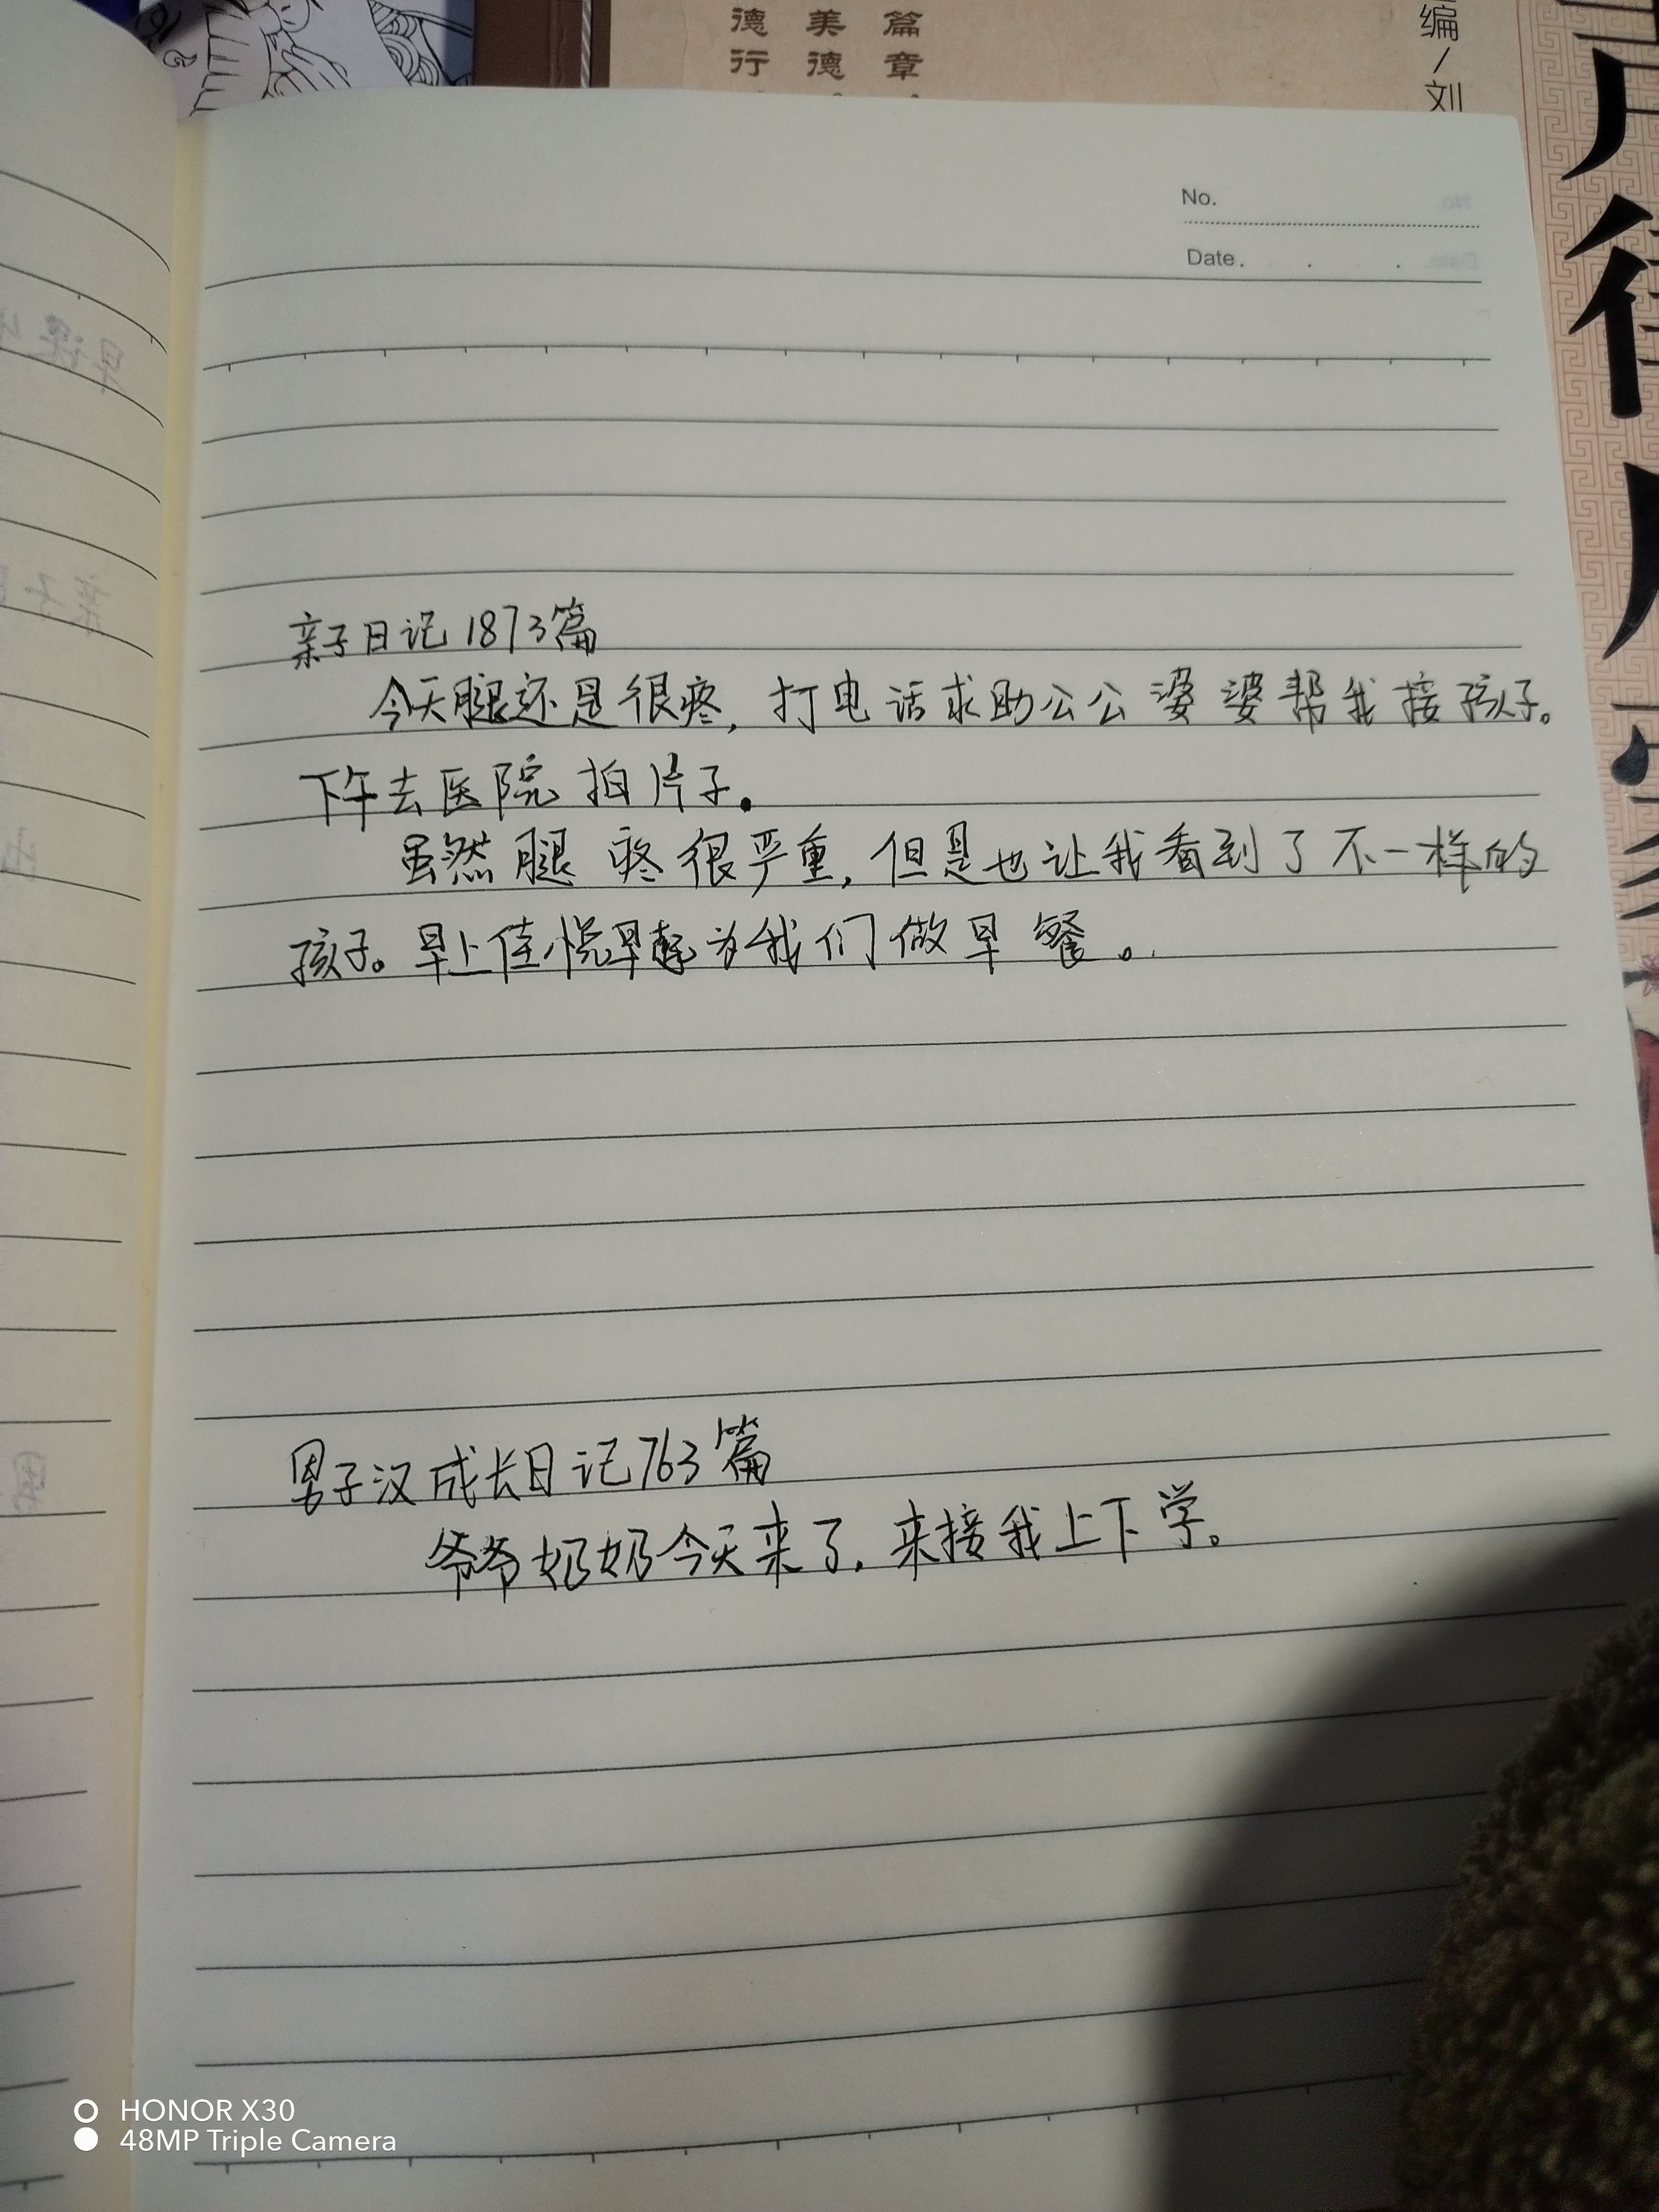 德 美 篇
行 德 章
编/刘
No.
Date.
亲子日记1873篇
今天腿还是很疼，打电话求助公公婆婆帮我接孩子。
下午去医院拍片子。
虽然腿疼很严重，但是也让我看到了不一样的
孩子。早上佳悦早起为我们做早餐。
男子汉成长日记763篇
爷爷奶奶今天来了，来接我上下学。
HONOR X30
48MP Triple Camera